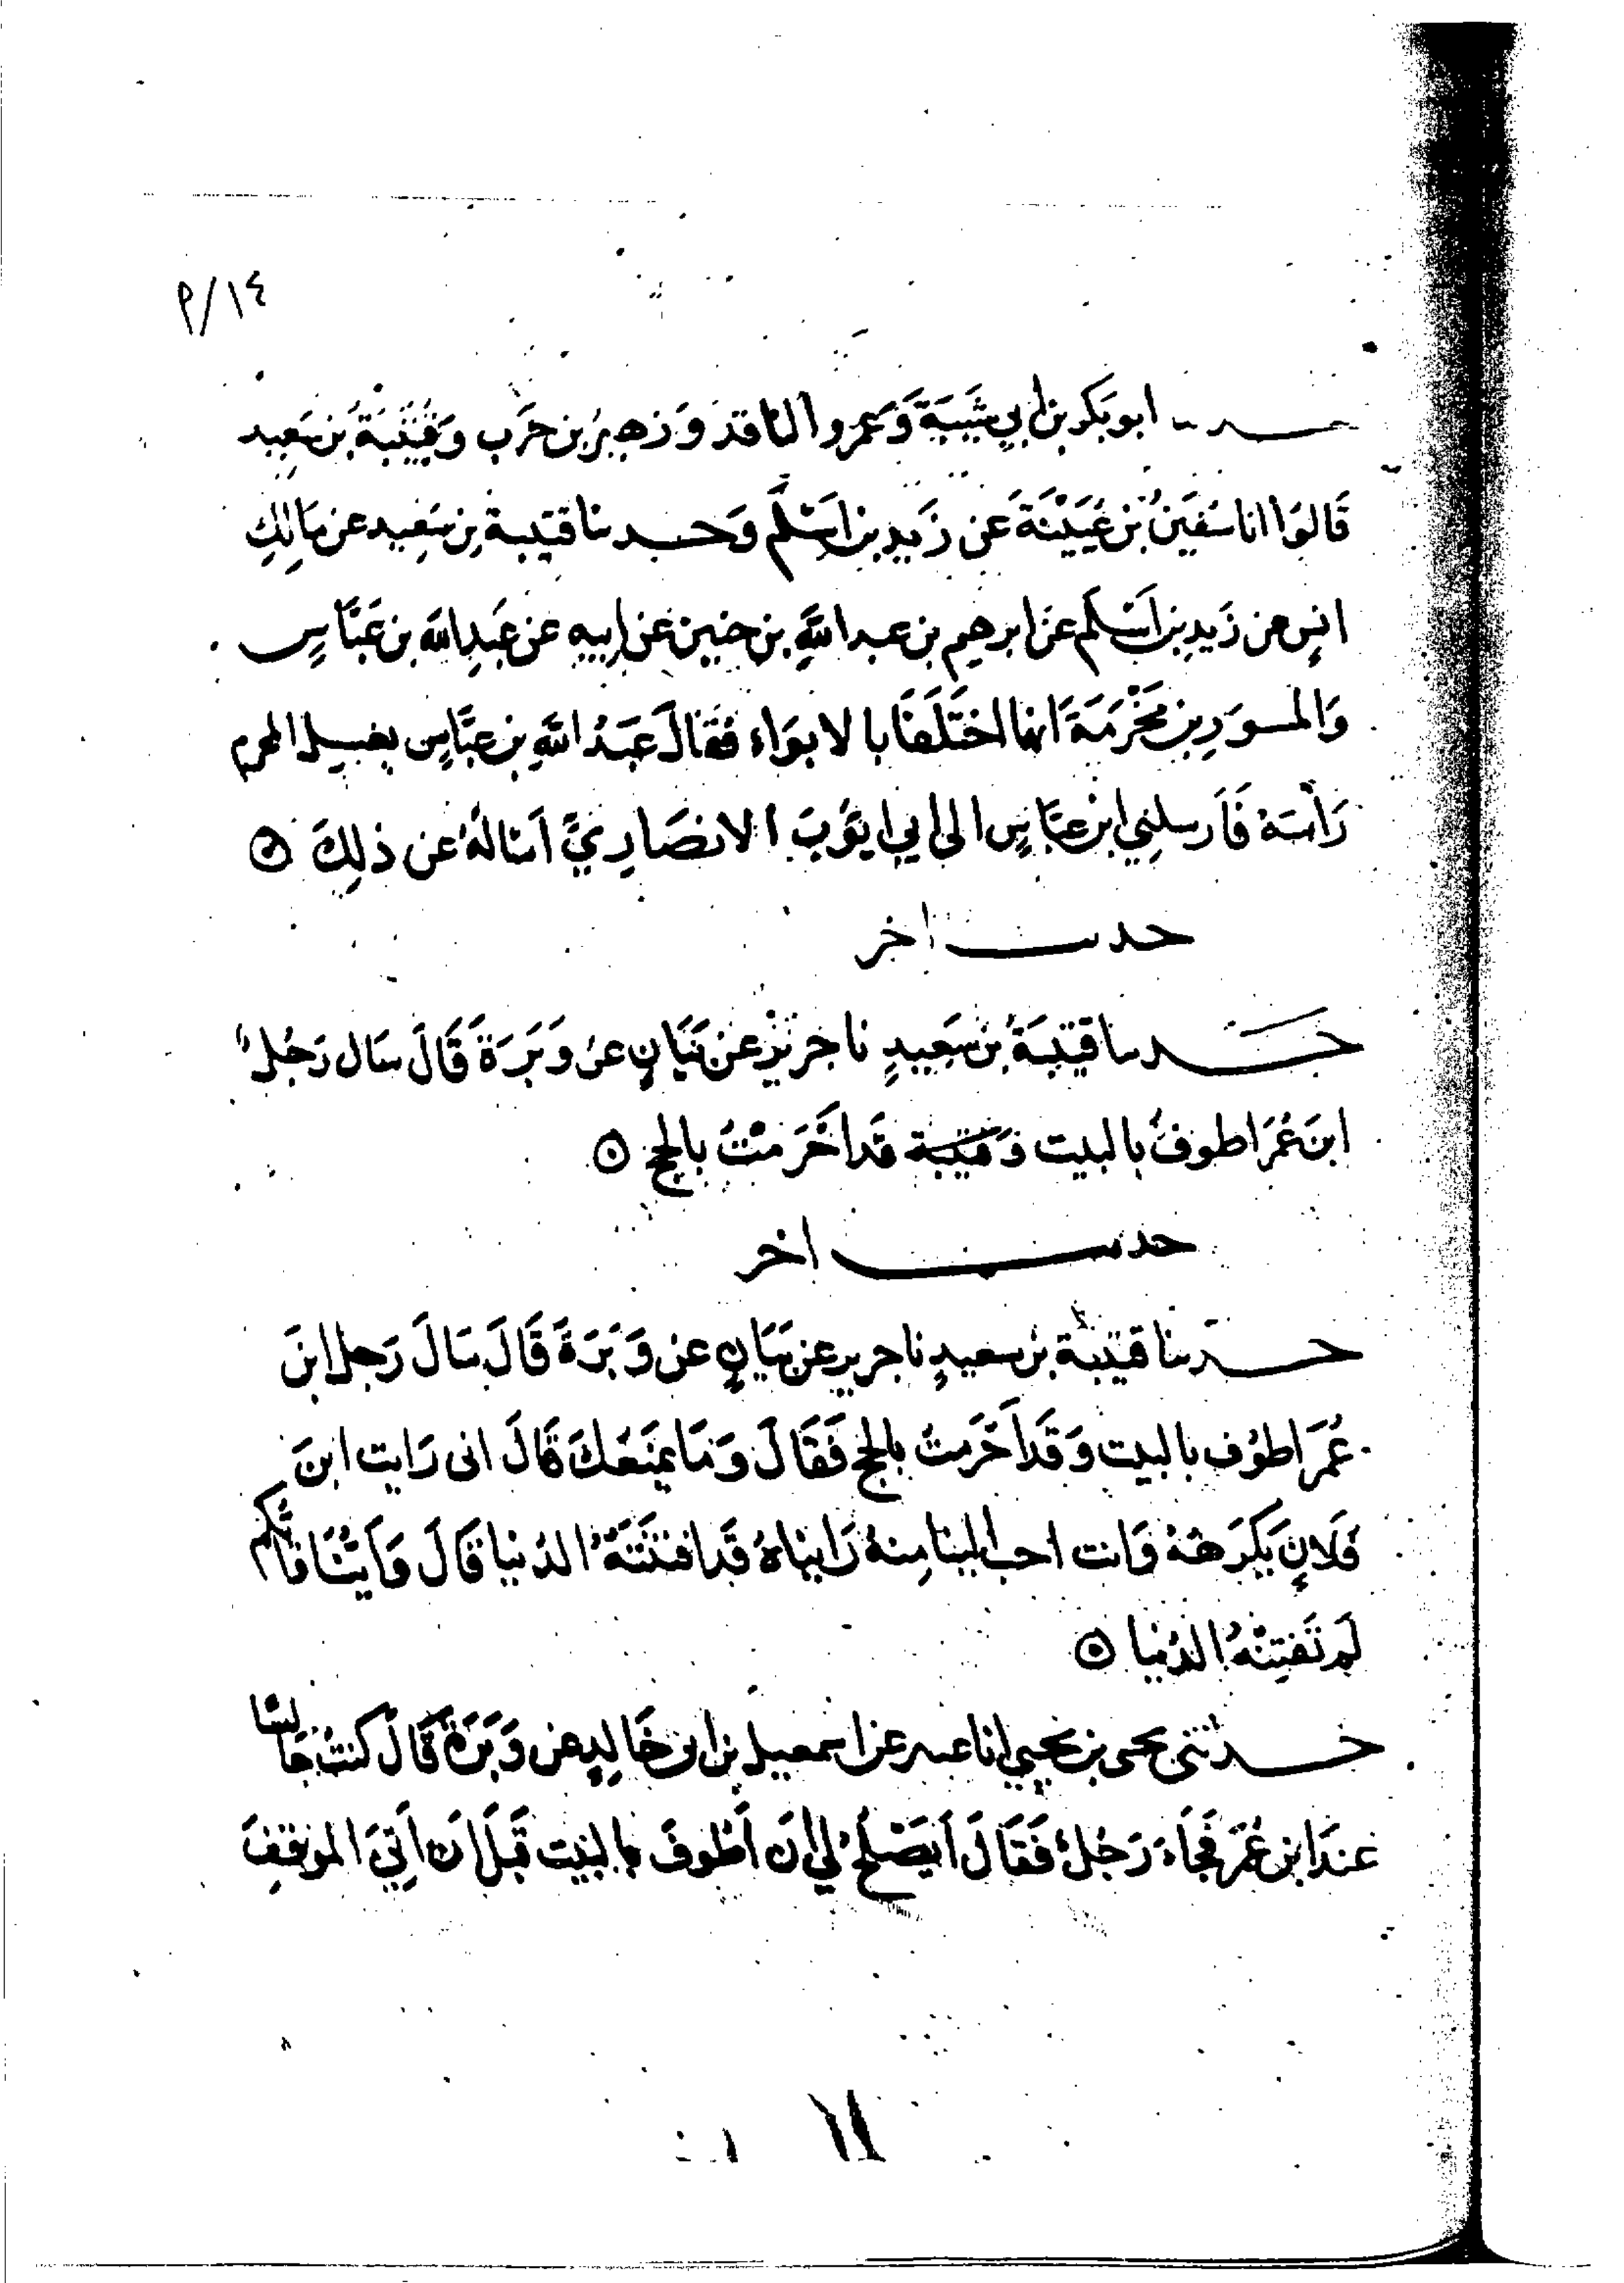 ١٤/٩
حدثنا ابو بَكر بن ابي شَيبَةَ وَعَمرو الناقد وَزهيرُ بن حَرَب وَقُتَيْبَةُ بن سَعِيد
قَالوُا انا سُفيَنُ بن عُيَيْنَةَ عَن زَيدِ بن اَسْلَم وَحدثنا قتيبة بن سَعِيد عن مَالِكِ
انسٍ عن زَيدِ بن اَسْلم عَن ابرهيم بن عبد اللَّهِ بن حنين عَن ابيهِ عَن عَبدِ اللَّه بن عَبَّاسٍ
وَالمسوَرِ بن مَخْرَمَةَ انهما اختَلَفَا بالابوَاء فَقَالَ عَبدُ اللَّهِ بن عبَّاسٍ يغسل المحرم
رَاْسَهُ فَاَرسلنِي ابن عبَّاسٍ الى ابي ايَّوُبَ الانصَارِيَّ اَسْالهُ عن ذلِكَ ۝
حديث اخر
حَدثنا قتيبَةُ بن سَعِيدٍ نا جَريرٌ عَن بَيَانٍ عَن وَبَرَةَ قَالَ سَال رَجُلٌ
ابنَ عُمَرَ اطوفُ بالبيت وَقتيبة قَد اَحْرَمْتُ بالحج ۝
حديث اخر
حدثنا قتيبة بن سعيدٍ نا جرير عن بَيَانٍ عن وَبَرَةَ قَالَ سَالَ رَجل ابنَ
عُمَرَ اطوُف بالبيت وَقَد اَحرَمتُ بالحج فَقَالَ وَمَا يمنَعُكَ قَالَ انى رَايت ابنَ
فلَانٍ يَكرَههُ وَانت احب الينا مِنهُ رَايناهُ قَد افتنَتهُ الدُنيا قَالَ وَاَيُّنَا او ايكم
لَم تَفتِنْهُ الدُنيَا ۝
حدثنى يحيى بن يَحيى انا عبثر عن اسمعيل بن ابى خَالِدٍ عن وَبَرَةَ قَالَ كنتُ جَالِسًا
عندَ ابن عُمَرَ فَجَاَءَ رَجُلٌ فَقَالَ اَيَصْلَحُ لِى اَن اَطوفَ بالبَيت قَبلَ اَن اَتِيَ الموقِفَ
١١